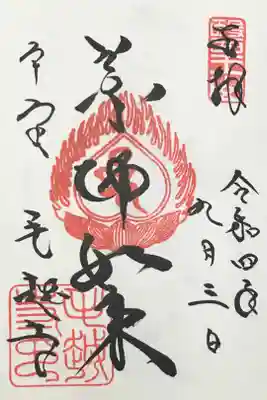 奉拝
令和四年
九月三日
薬師如来
平泉
毛越寺